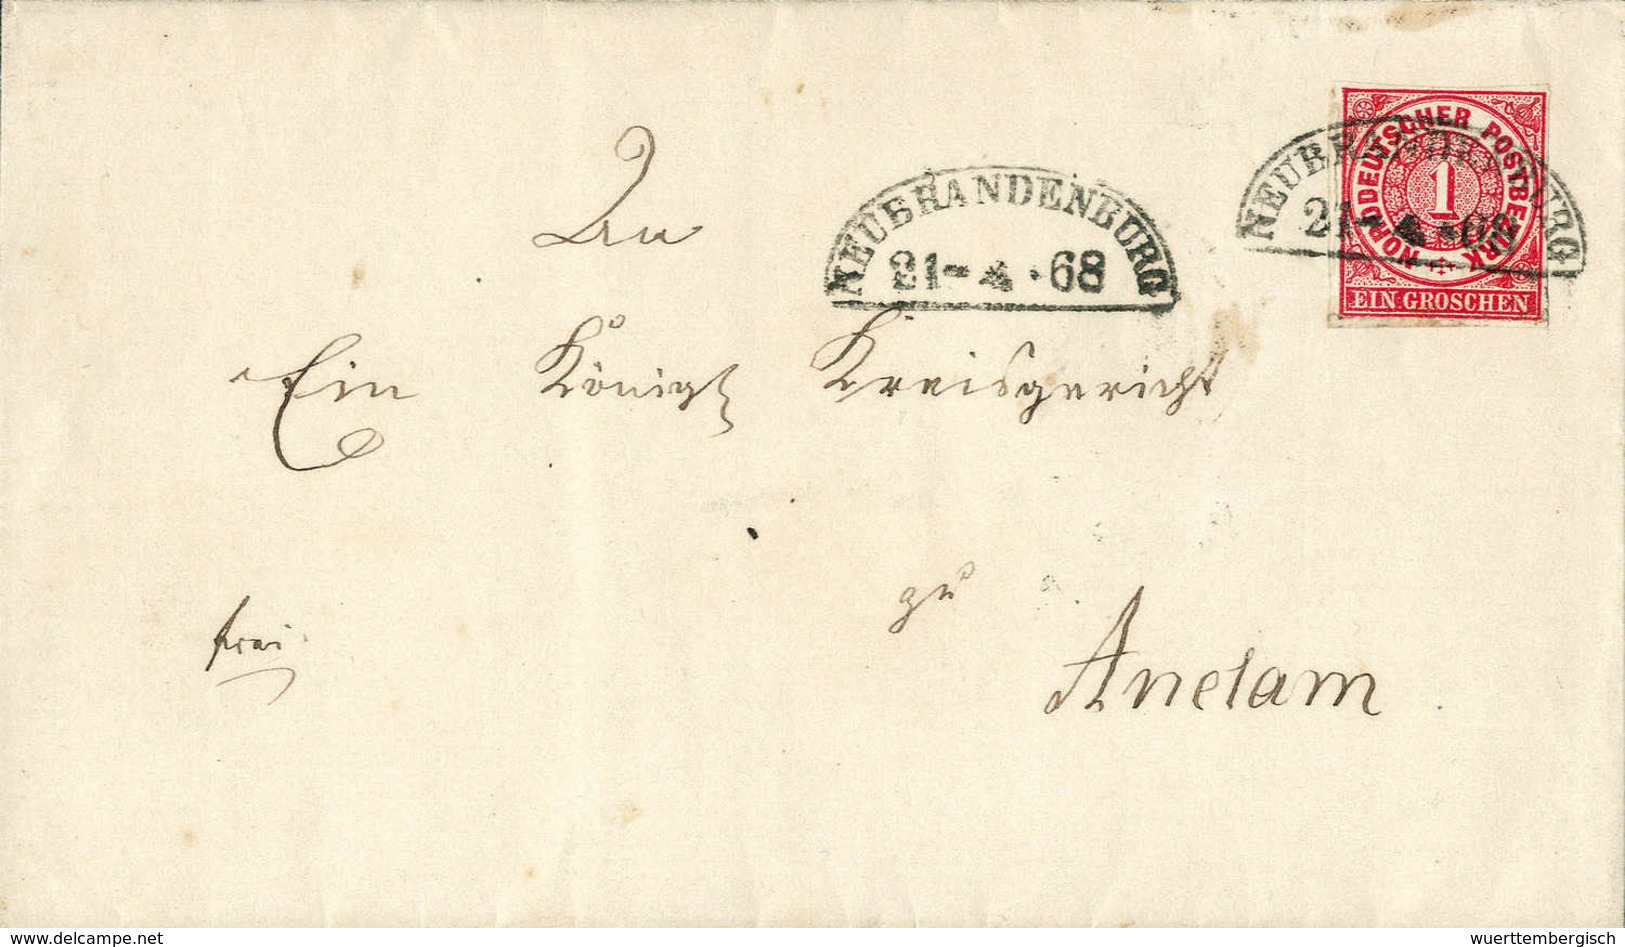 An
NEUBRANDENBURG
21-4.68
NEUBRANDENBURG
21-4.68
NORDDEUTSCHER POSTBEZIRK
1
EIN GROSCHEN
Ein Königl Kreisgericht
zu
frei
Anclam
www.delcampe.net
wuerttembergisch